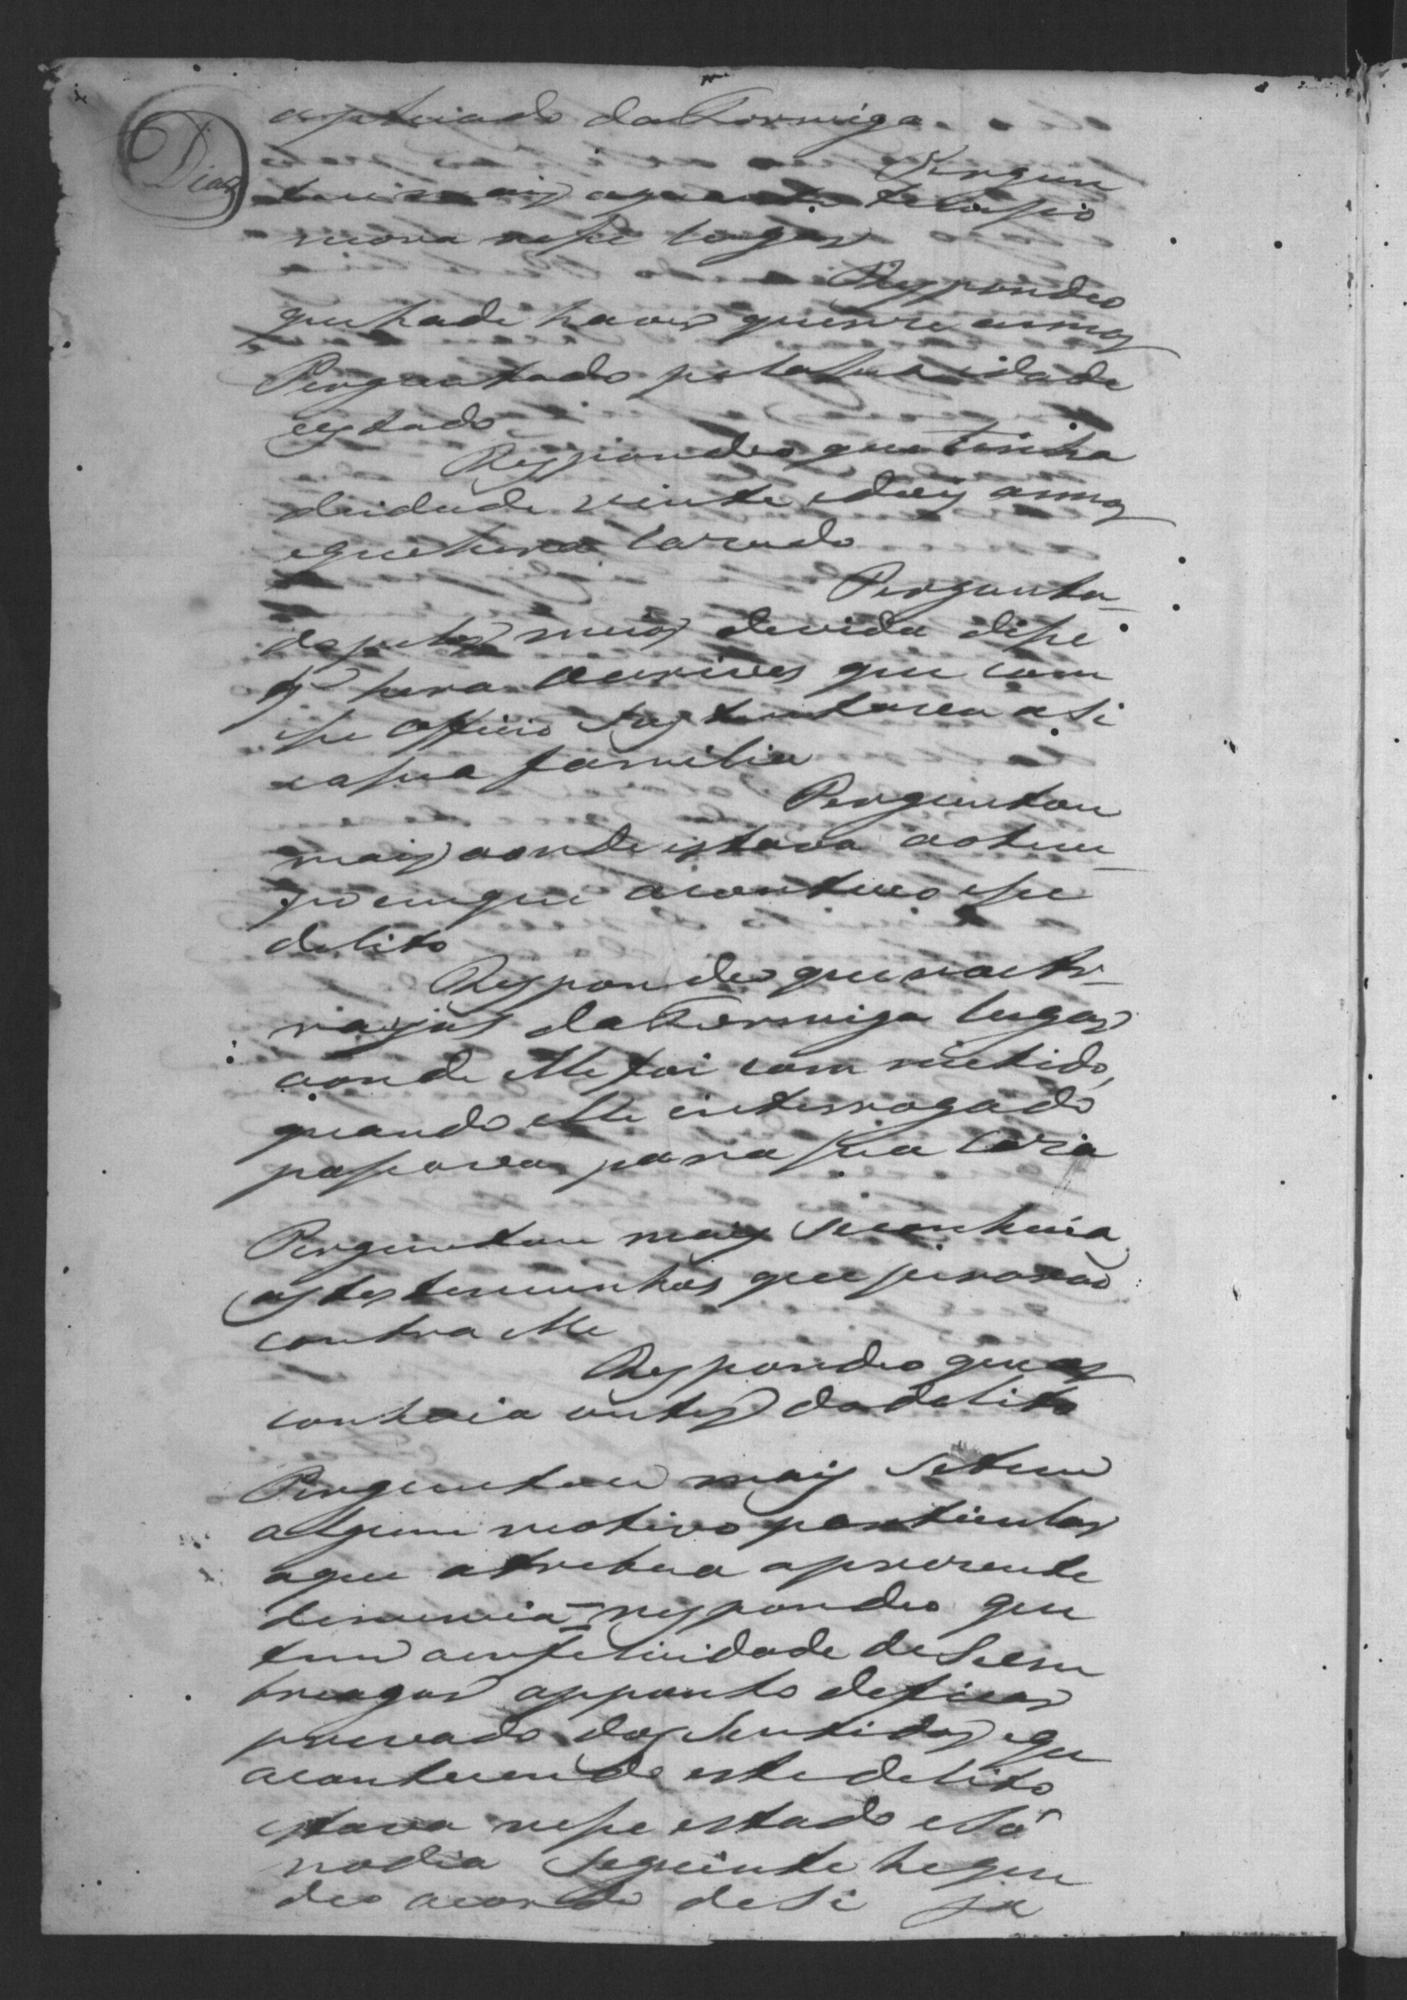 Dias
da Formiga
Pergun
tou mais a quanto tempo
mora nesse lugar
Respondeo
que hade haver quinze annos
Perguntado pela sua idade
estado
Respondeo que tinha
de idade vinte e dois annos
e que hera cazado
Pergunta-
do pelos meios de vida disse
q hera Ourives que com
esse officio sustentava a si
e a sua familia
Perguntou
mais aonde estava ao tem-
po em que aconteceo esse
delito
Respondeo que no
da Formiga lugar
aonde elle foi comметido,
quando elle interrogado
passava para sua caza
Perguntou mais se conhecia
as testemunhas que juraraõ
contra elle
Respondeo que as
conhecia antes do delito
Perguntou mais se tem
algum motivo particular
a que atribua a prezente
denuncia = respondeo que
tem a infelicidade de se em
briagar apponto de ficar
privado dos sentidos e qu
acontecendo este delito
estava nesse estado e só
no dia seguinte he que
deo acordo de si ja